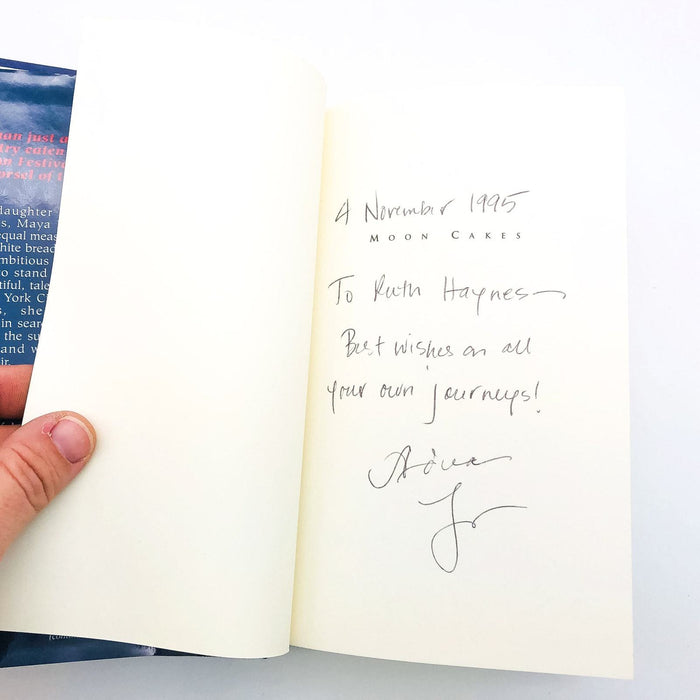 un just a
try calen
on Festiv
orsel of t
daughter
s, Maya
equal meas
hite bread
mbitious
o stand
tiful, tale
York Ci
s, she
in sear
the su
and w
ir.
4 November 1995
MOON CAKES
To Ruth Haynes—
Best wishes on all
your own journeys!